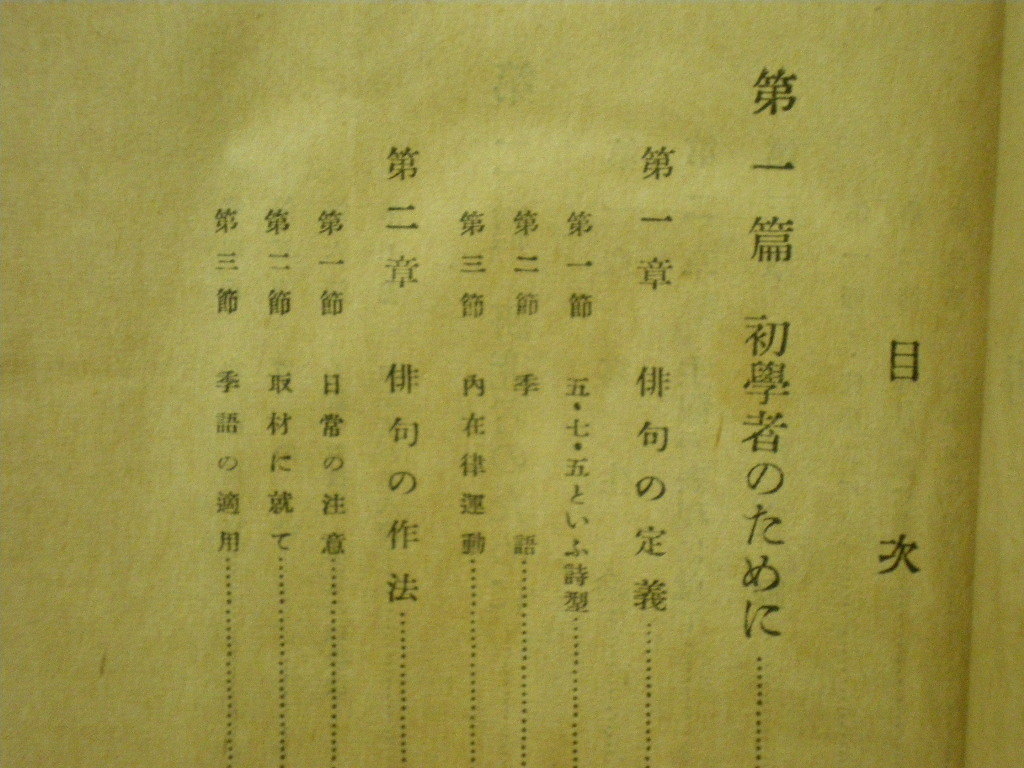 目次
第一篇 初學者のために
第一章 俳句の定義
第一節 五・七・五といふ詩型
第二節 季語
第三節 內在律運動
第二章 俳句の作法
第一節 日常の注意
第二節 取材に就て
第三節 季語の適用